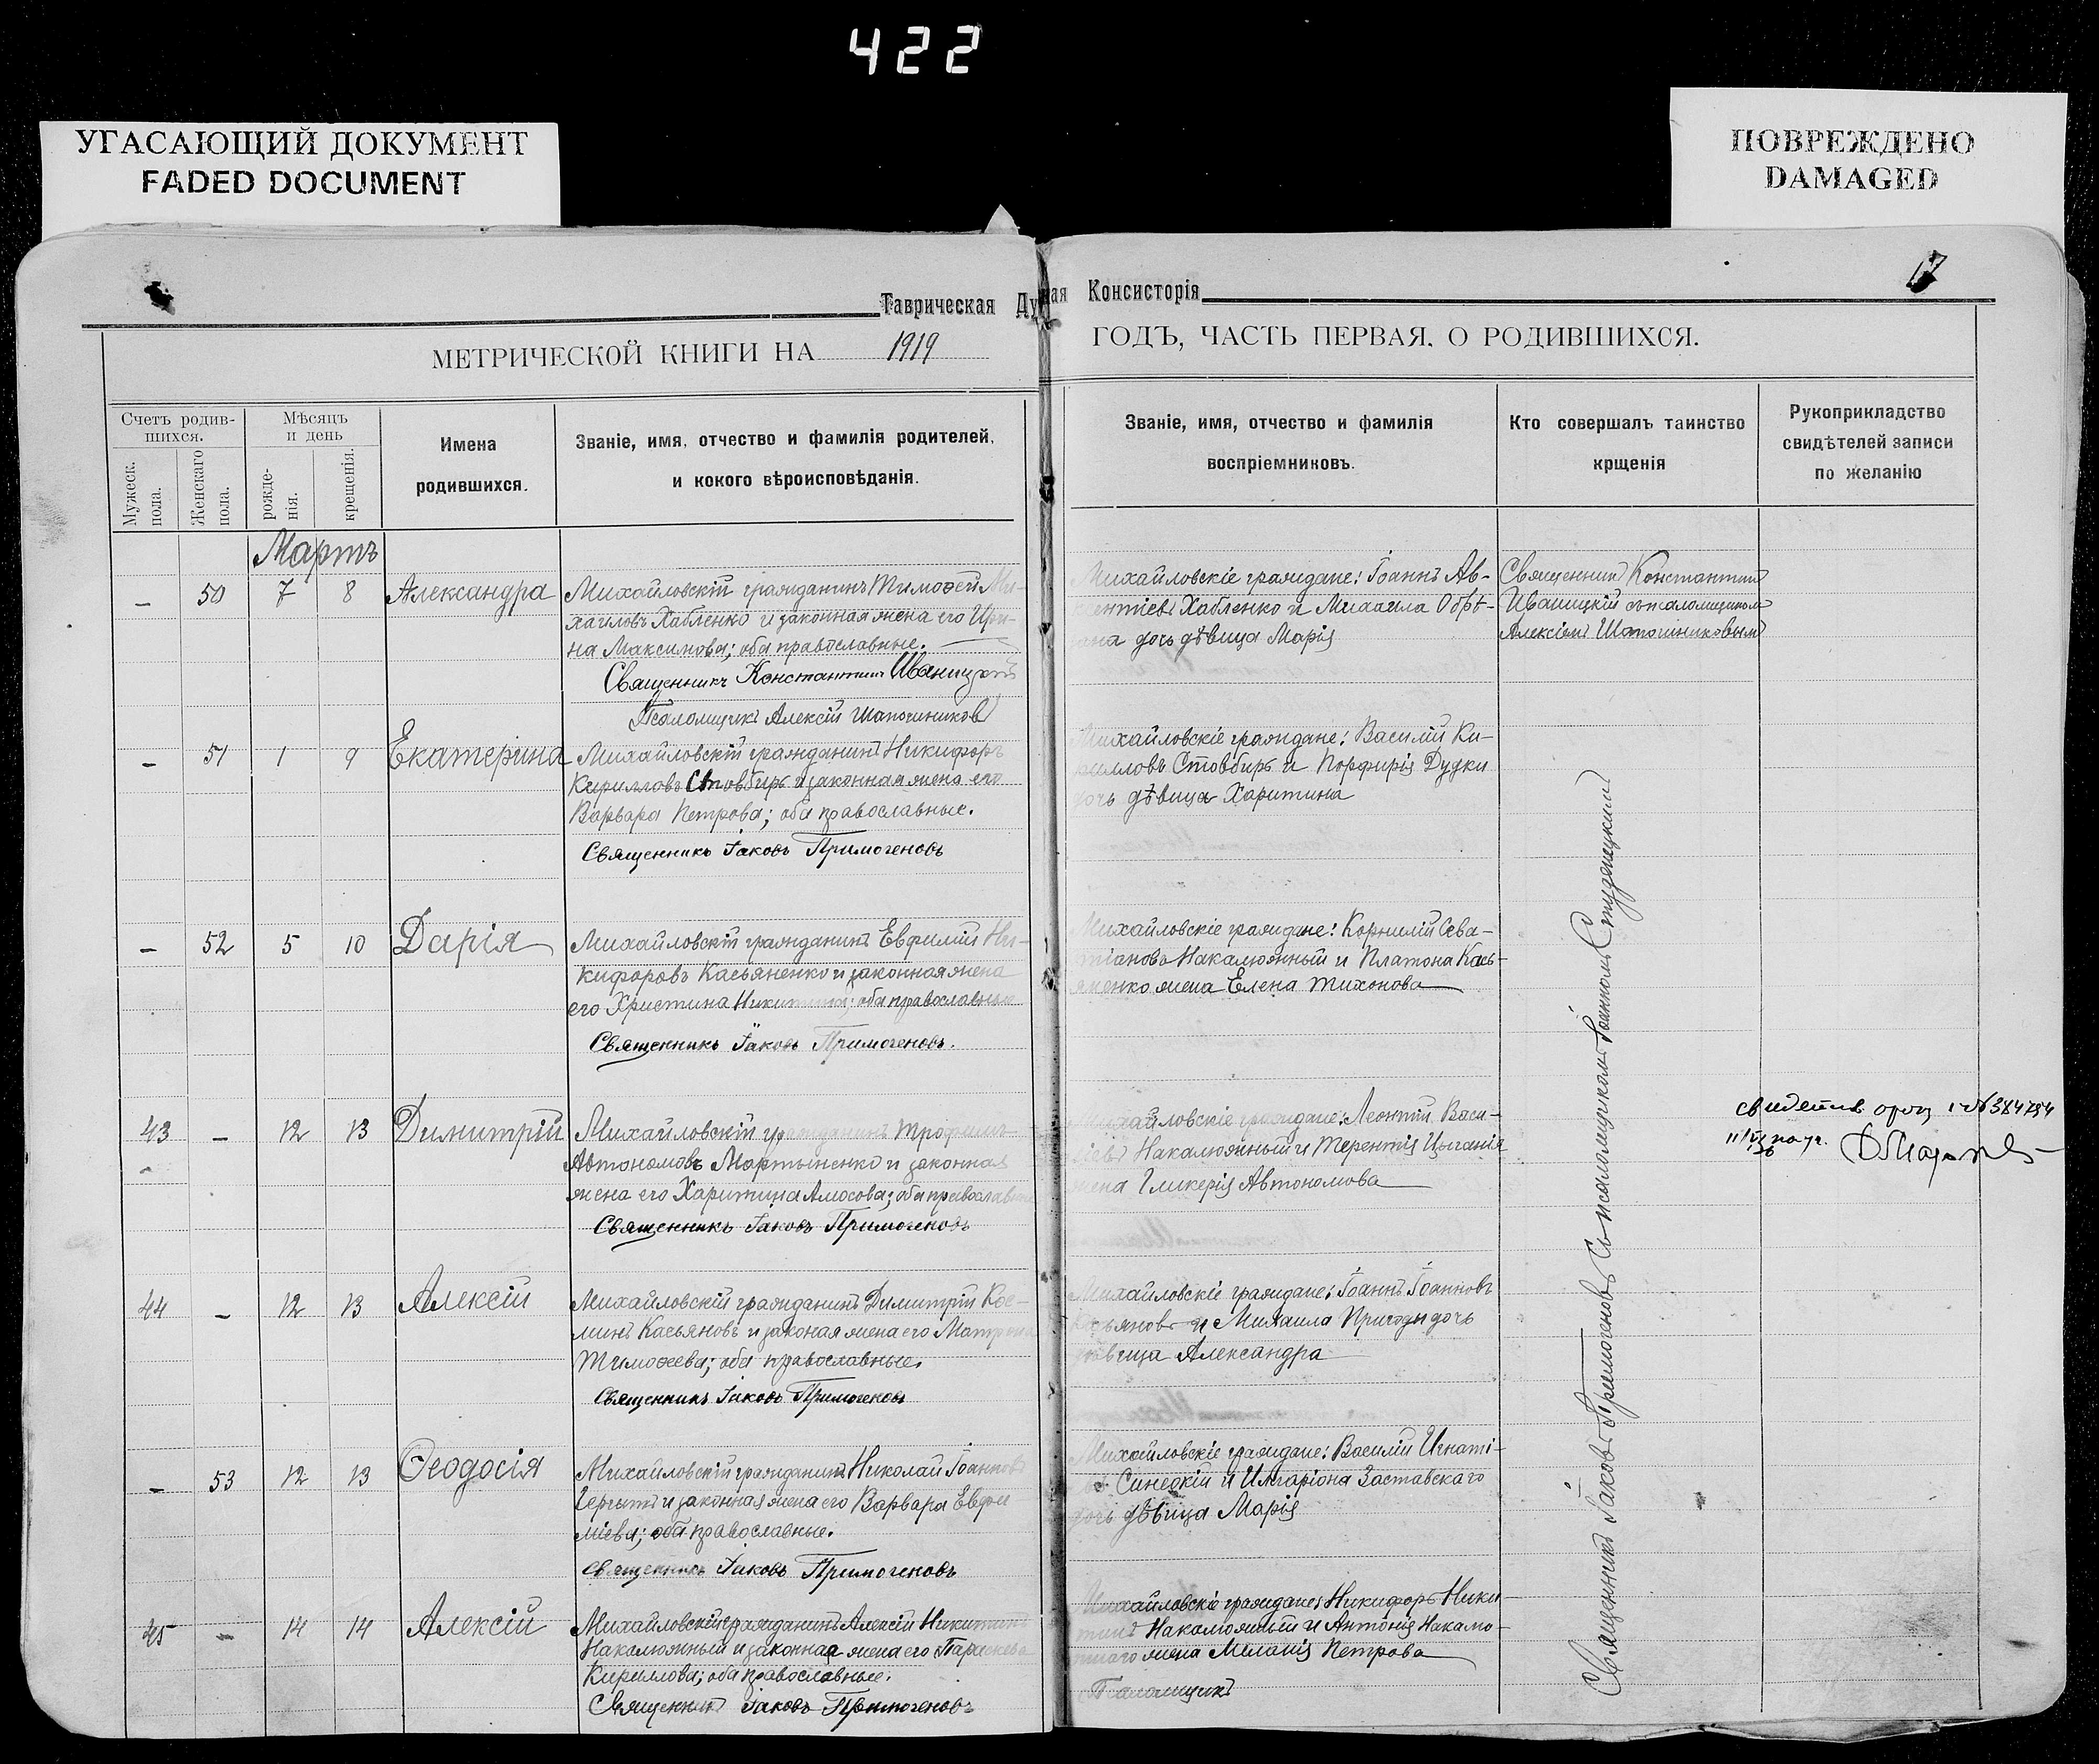 422
УГАСАЮЩИЙ ДОКУМЕНТ
FADED DOCUMENT
ПОВРЕЖДЕНО
DAMAGED
17
Таврическая Ду ная Консисторія
МЕТРИЧЕСКОЙ КНИГИ НА 1919 ГОДЪ, ЧАСТЬ ПЕРВАЯ. О РОДИВШИХСЯ.
Счетъ родив-
шихся.
Мужеск. пола.
Женскаго пола.
Мѣсяцъ
и день
рожде-
нія.
крещенія.
Имена
родившихся.
Званіе, имя, отчество и фамилія родителей,
и кокого вѣроисповѣданія.
Званіе, имя, отчество и фамилія
воспріемниковъ.
Кто совершалъ таинство
крщенія
Рукоприкладство
свидѣтелей записи
по желанію
Мартъ
– 50 7 8 Александра
Михайловскій гражданинъ Тимоѳей Ми-
хаиловъ Хабленко и законная жена его Ири-
на Максимова; оба православные.
Священникъ Константинъ Иваницкій
Псаломщикъ Алексій Шапошниковъ
Михайловскіе граждане: Іоаннъ Ав-
ентіевъ Хабленко и Михаила Обрѣ-
дочь дѣвица Марія
Священникъ Константинъ
Иваницкій съ псаломщикомъ
Алексіемъ Шапошниковымъ
– 51 1 9 Екатерина
Михайловскій гражданинъ Никифоръ
Кирилловъ Стовбиръ и законная жена его
Варвара Петрова; оба православные.
Священникъ Іаковъ Примогеновъ
Михайловскіе граждане: Василій Ки-
рилловъ Стовбиръ и Порфирія Дудки
дочь дѣвица Харитина
– 52 5 10 Дарія
Михайловскій гражданинъ Евфимій Ни-
кифоровъ Касьяненко и законная жена
его Христина Никитина; оба православные
Священникъ Іаковъ Примогеновъ.
Михайловскіе граждане: Корнилій Сева-
стіановъ Накалюжный и Платона Кась-
яненко жена Елена Тихонова
43 – 12 13 Димитрій
Михайловскій гражданинъ Трофимъ
Автономовъ Мартыненко и законная
жена его Харитина Амосова; оба православные
Священникъ Іаковъ Примогеновъ
Михайловскіе граждане: Леонтій Васи-
ліевъ Накалюжный и Терентія Цыганія
жена Гликерія Автономова
44 – 12 13 Алексій
Михайловскій гражданинъ Димитрій Кос-
минъ Касьяновъ и законая жена его Матрона
Тимоѳеева; оба православные.
Священникъ Іаковъ Примогеновъ
Михайловскіе граждане: Іоаннъ Іоанновъ
Касьяновъ и Михаила Пригоды дочь
дѣвица Александра
– 53 12 13 Ѳеодосія
Михайловскій гражданинъ Николай Іоанновъ
и законная жена его Варвара Евфи
міева; оба православные.
Священникъ Іаковъ Примогеновъ
Михайловскіе граждане: Василій Игнаті-
въ Синеокій и Иларіона Заставскаго
дочь дѣвица Марія
45 – 14 14 Алексій
Михайловскій гражданинъ Алексій Никитинъ
Накалюжный и законная жена его Параскева
Кириллова; оба православные.
Священникъ Іаковъ Примогеновъ
Михайловскіе граждане: Никифоръ Ники
тинъ Накалюжный и Антонія Накалю-
жнаго жена Меланія Петрова
Псаломщикъ
Священникъ Іаковъ Примогеновъ съ псаломщикомъ Іоанномъ Студенецкимъ